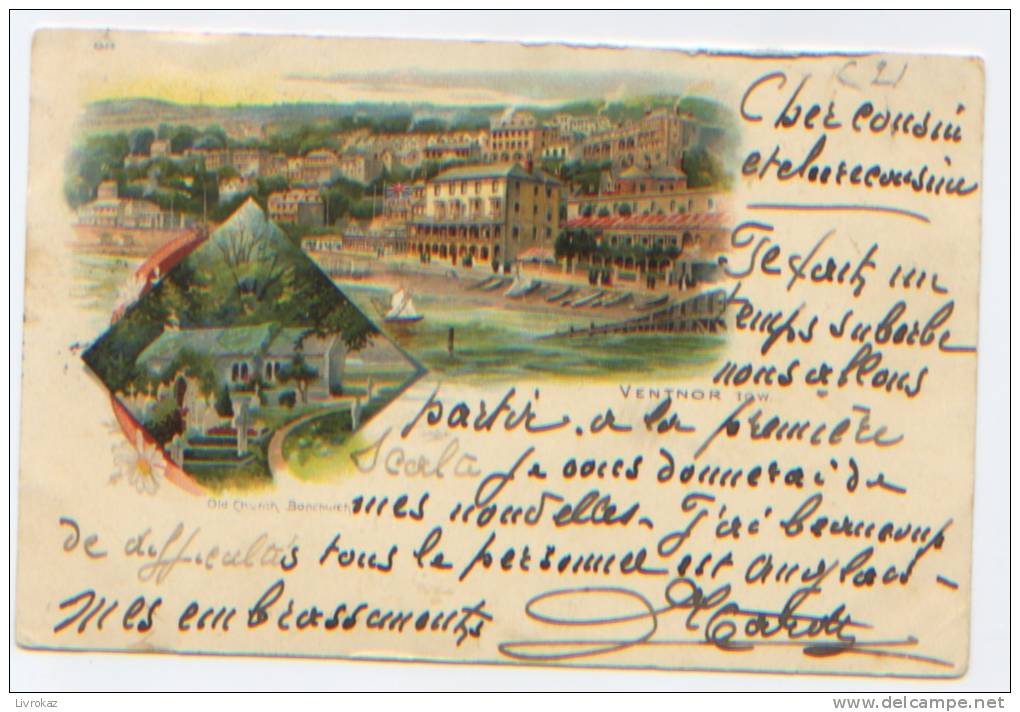 Cher cousin
et chere cousine
Je fait un
temps suberbe
nous allons
VENTNOR IOW.
partir. a la première
Scala je vous donnerai de
Old Church, Bonchurch
mes nouvelles. J'ai beaucoup
de difficultés tous le personnel est Anglais -
Mes embrassements
Livrokaz
www.delcampe.net